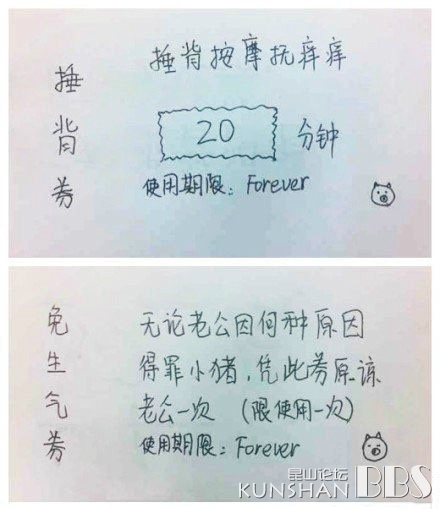 捶背券
捶背按摩抚痒痒
20 分钟
使用期限：Forever
免生气券
无论老公因何种原因
得罪小猪，凭此券原谅
老公一次（限使用一次）
使用期限：Forever
昆山论坛
KUNSHAN BBS